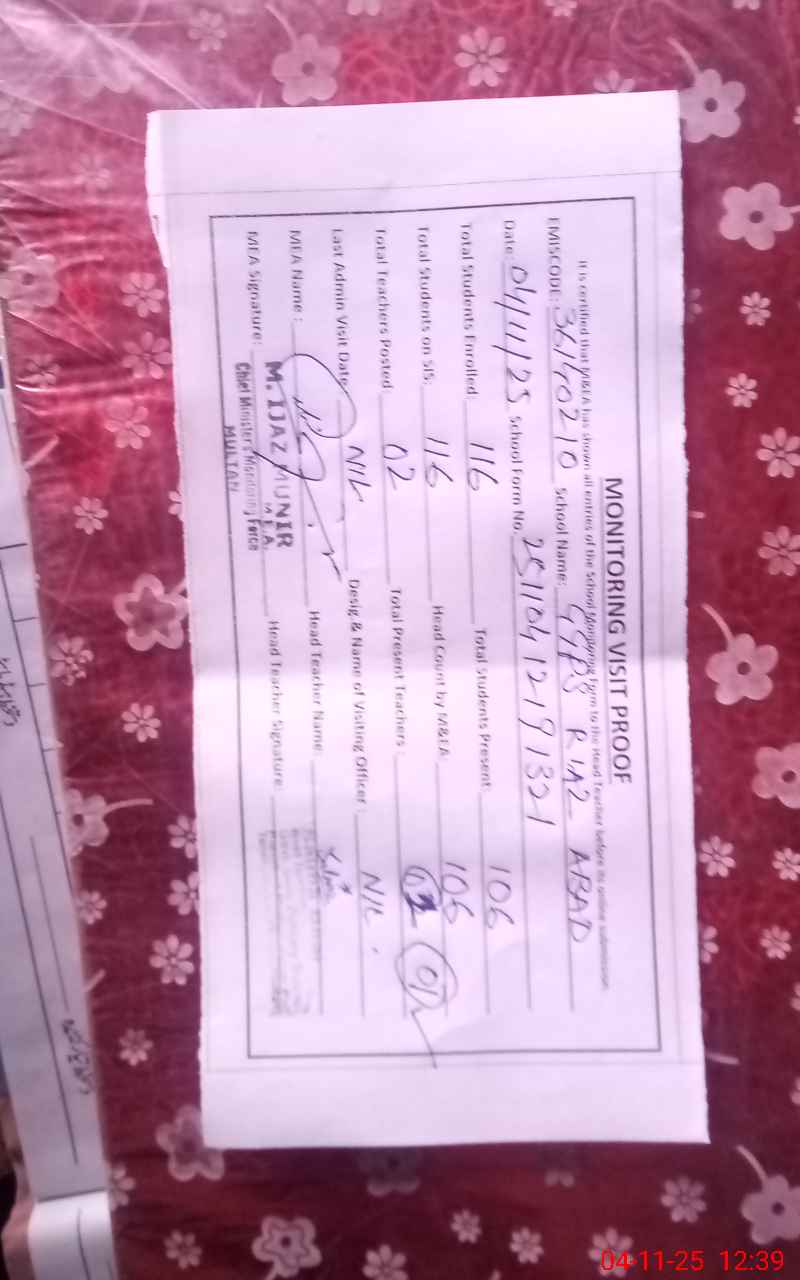 MONITORING VISIT PROOF
It is certified that M&EA has shown all entries of the School Monitoring Form to the Head Teacher before its online submission
EMISCODE: 36140210 School Name: GGPS RIAZ ABAD
Date: 04/11/25 School Form No. 25110412191321
Total Students Enrolled: 116 Total Students Present: 106
Total Students on SIS: 116 Head Count by M&EA: 106
Total Teachers Posted: 02 Total Present Teachers: 01
Last Admin Visit Date: NIL Desig & Name of Visiting Officer: NIL.
MEA Name: M. IJAZ MUNIR Head Teacher Name:
M.E.A.
MEA Signature: Chief Minister's Monitoring Force Head Teacher Signature:
MULTAN
04-11-25 12:39